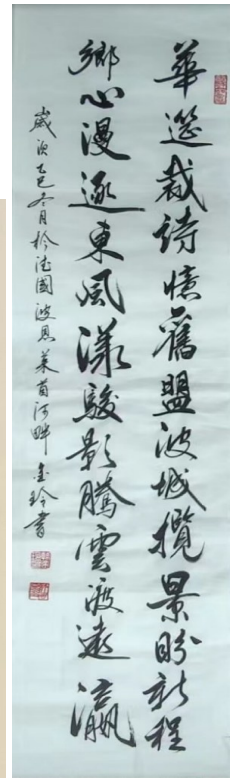 華筵裁詩憶舊盟波城攬景盼新程
鄉心漫逐東風漾駿影騰雲渡遠瀛
歲次乙巳冬月於德國波恩萊茵河畔金玲書